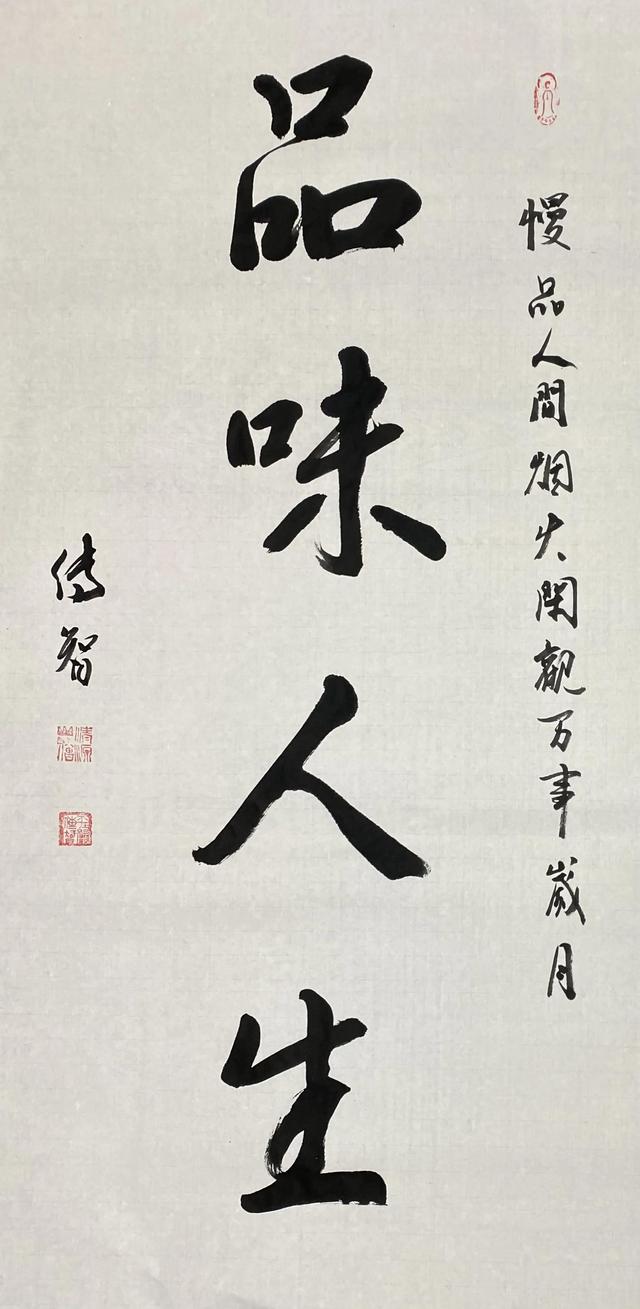 慢品人間烟火閑觀万事歲月
品味人生
傳智